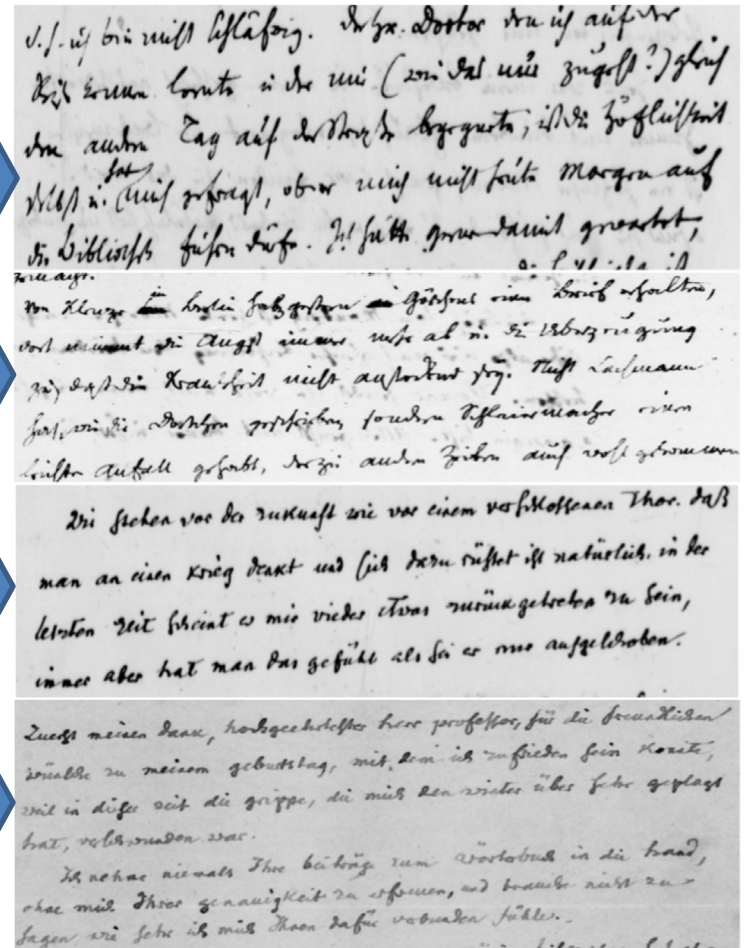 d. h. ich bin nicht schläfrig. Der Hr. Doctor den ich auf der
Reise kennen lernte u der mir (wie das nur zugeht?) gleich
den andern Tag auf der Straße begegnete, ist die Höflichkeit
selbst u. hat mich gefragt, ob er mich nicht heute Morgen auf
die Bibliothek führen dürfe. Ich hätte gerne damit gewartet,
von Klenze in Berlin hat gestern Göschens einen Brief erhalten,
dort nimmt die Angst immer mehr ab u. die Ueberzeugung
zu, daß die Krankheit nicht ansteckend sey. Nicht Lachmann
hat, wie die Dortchen geschrieben, sondern Schleiermacher einen
leichten Anfall gehabt, der zu andern Zeiten auch wohl gekommen
Wir stehen vor der zukunft wie vor einem verschlossenen Thor. daß
man an einen krieg denkt und sich dazu rüstet ist natürlich. in der
letzten zeit scheint es mir wieder etwas zurück getreten zu sein,
immer aber hat man das gefühl als sei es nur aufgeschoben.
Zuerst meinen dank, hochgeehrtester herr professor, für die freundlichen
wünsche zu meinem geburtstag, mit dem ich zufrieden sein konnte,
weil in dieser zeit die grippe, die mich den winter über sehr geplagt
hat, verschwunden war.
Ich nehme niemals Ihre beiträge zum wörterbuch in die hand,
ohne mich Ihrer genauigkeit zu erfreuen, und brauche nicht zu
sagen, wie sehr ich mich Ihnen dafür verbunden fühle.